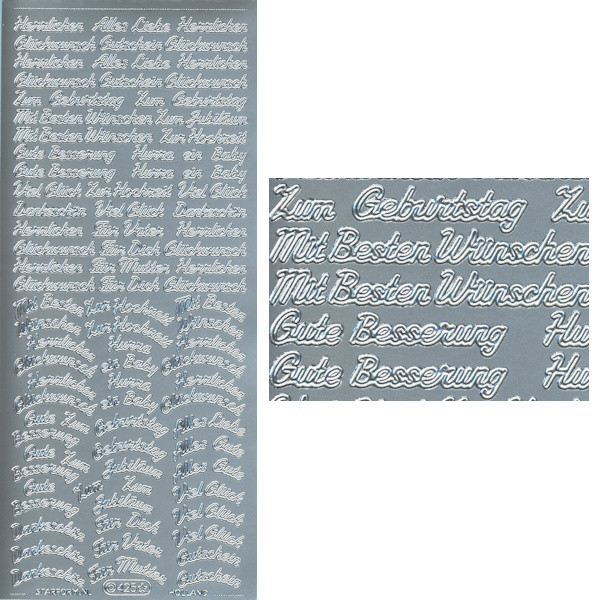 Herzlichen Alles Liebe Herzlichen
Glückwunsch Gutschein Glückwunsch
Herzlichen Alles Liebe Herzlichen
Glückwunsch Gutschein Glückwunsch
Zum Geburtstag Zum Geburtstag
Mit Besten Wünschen Zum Jubiläum
Mit Besten Wünschen Zur Hochzeit
Gute Besserung Hurra ein Baby
Gute Besserung Hurra ein Baby
Viel Glück Zur Hochzeit Viel Glück
Dankeschön Viel Glück Dankeschön
Herzlichen Für Vater Herzlichen
Glückwunsch Für Dich Glückwunsch
Herzlichen Für Mutter Herzlichen
Glückwunsch Für Dich Glückwunsch
Mit Besten Zur Hochzeit Mit Besten
Wünschen Zur Hochzeit Wünschen
Herzlichen Hurra Herzlichen
Glückwunsch ein Baby Glückwunsch
Herzlichen Hurra Herzlichen
Glückwunsch ein Baby Glückwunsch
Gute Zum Alles Liebe
Besserung Geburtstag Alles Gute
Gute Zum Geburtstag Alles Gute
Besserung Jubiläum
Gute Zum Zum Viel Glück
Besserung Jubiläum Viel Glück
Dankeschön Für Dich Viel Glück
Dankeschön Für Vater Gutschein
Dankeschön Für Mutter Gutschein
STARFORM.NL HOLLAND
Zum Geburtstag Zu
Mit Besten Wünschen
Mit Besten Wünschen
Gute Besserung Hu
Gute Besserung Hu